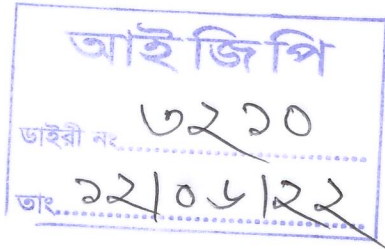 আইজিপি
ডাইরী নং ৩২১০
তাং ১২/০৬/২২